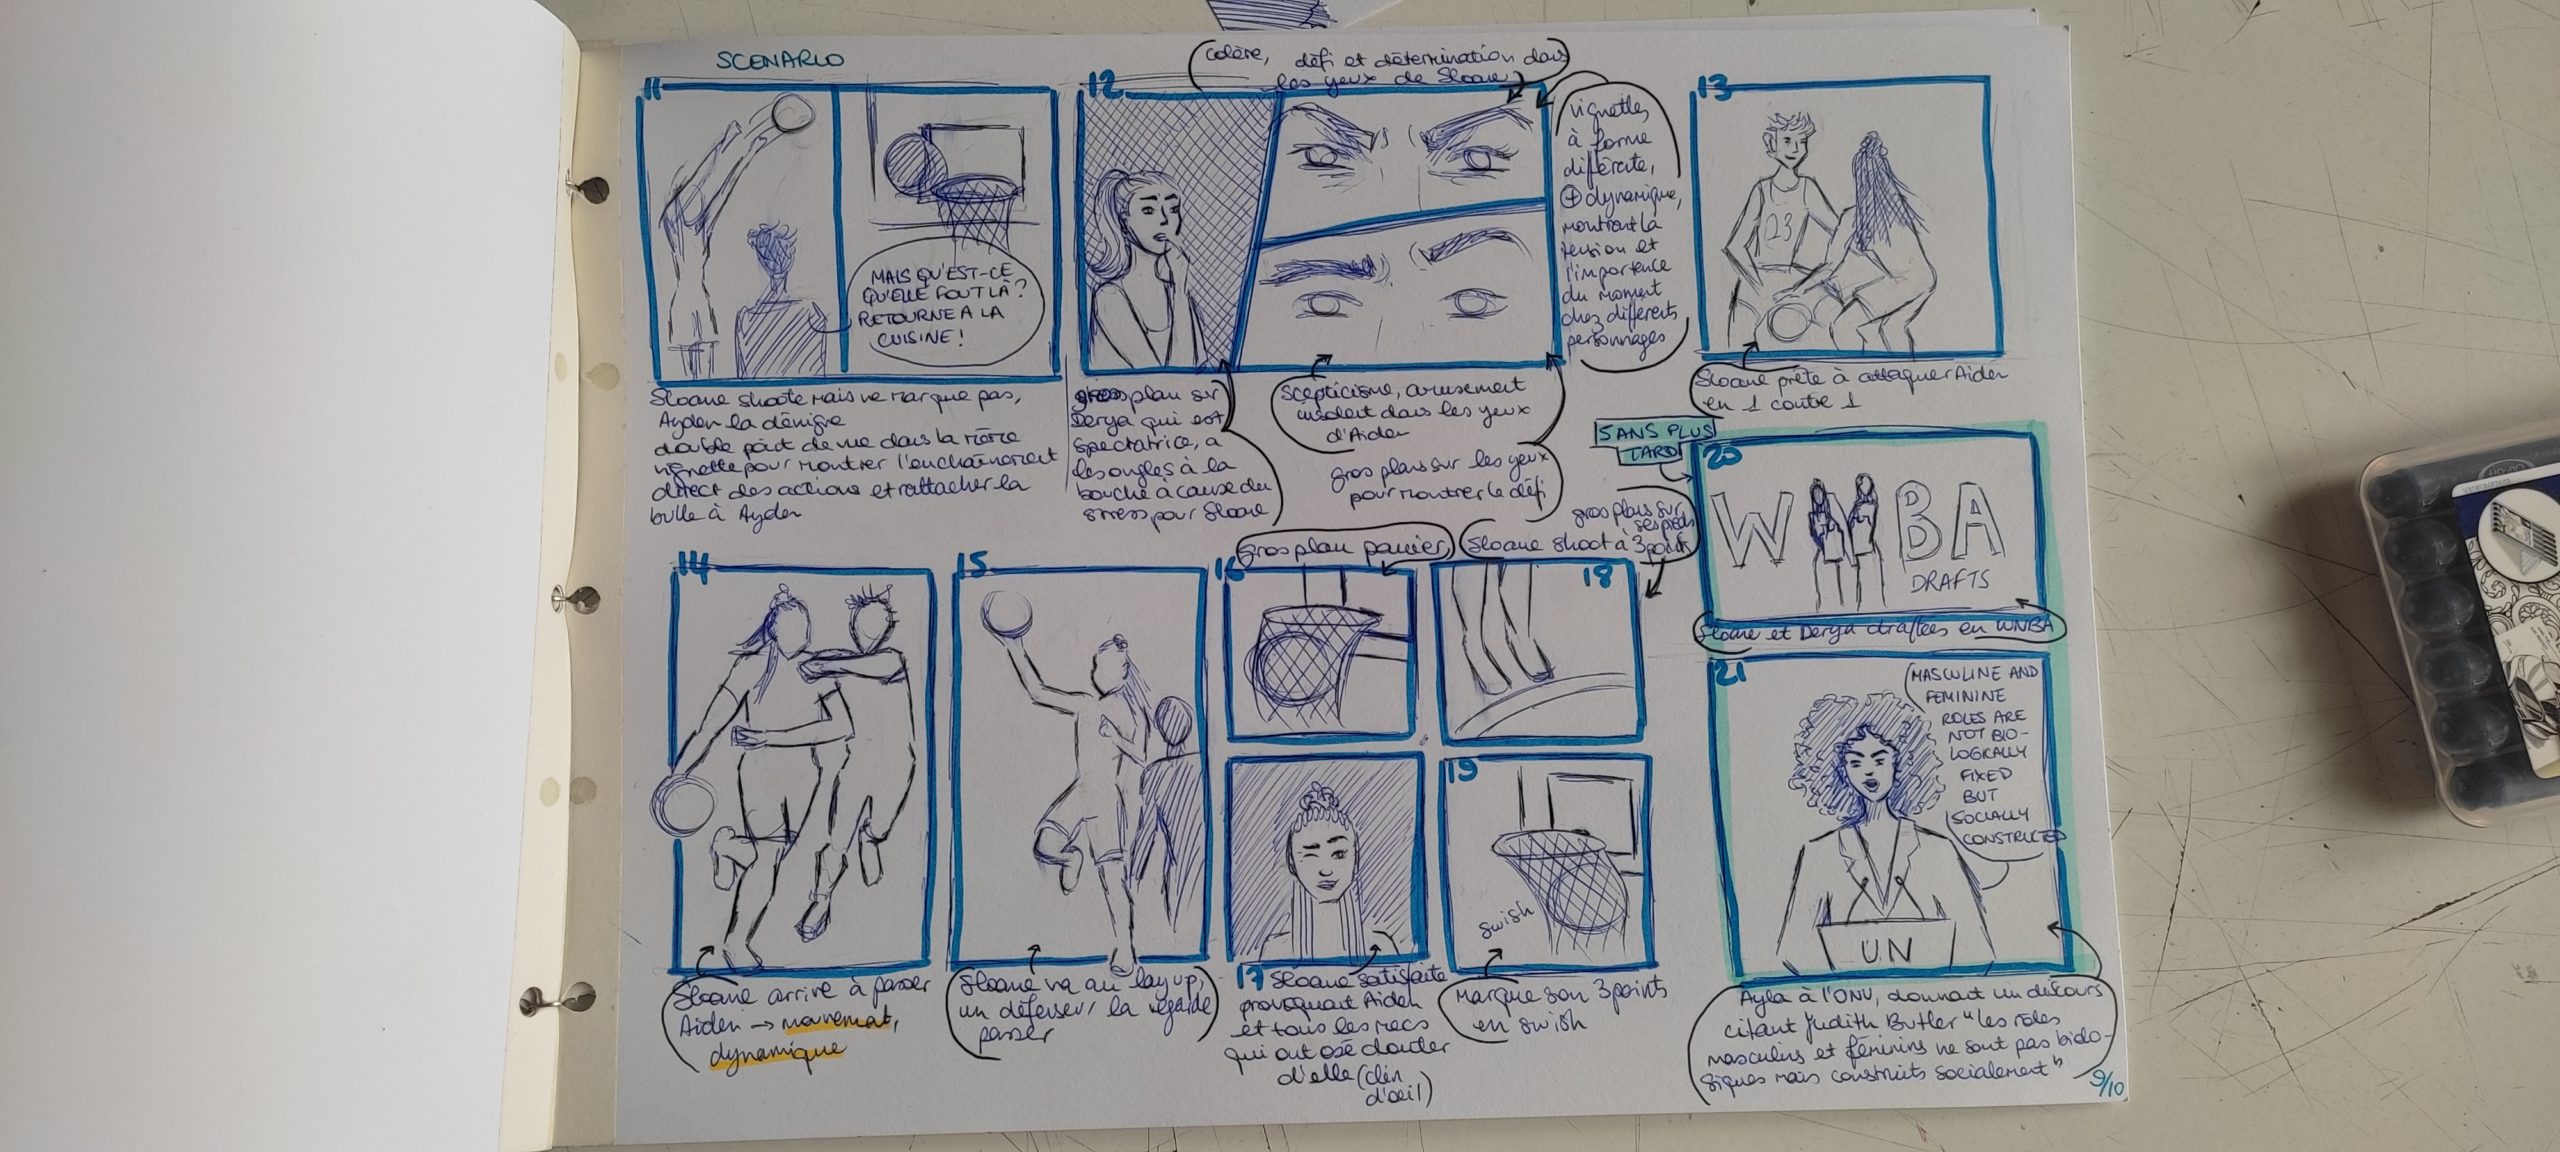 SCENARIO
11
MAIS QU'EST-CE
QU'ELLE FOUT LÀ?
RETOURNE A LA
CUISINE!
Sloane shoote mais ne marque pas,
Ayden la dénigre
double point de vue dans la même
vignette pour montrer l'enchaînement
direct des actions et rattacher la
bulle à Ayden
12
colère, défi et détermination dans
les yeux de Sloane
vignettes
à forme
différente,
+ dynamique,
montrant la
tension et
l'importance
du moment
chez différents
personnages
gros plan sur
Derya qui est
spectatrice, a
les ongles à la
bouche à cause du
stress pour Sloane
Scepticisme, amusement
insolent dans les yeux
d'Aiden
gros plans sur les yeux
pour montrer le défi
13
23
Sloane prête à attaquer Aiden
en 1 contre 1
14
Sloane arrive à passer
Aiden → mouvement,
dynamique
15
Sloane va au lay up,
un défenseur la regarde
passer
Gros plan panier
16
17 Sloane satisfaite
provoquant Aiden
et tous les mecs
qui ont osé douter
d'elle (clin
d'œil)
gros plan sur
ses pieds
Sloane shoot à 3 points
18
19
swish
Marque son 3 points
en swish
5 ANS PLUS
TARD
20
WNBA
DRAFTS
Sloane et Derya draftées en WNBA
21
MASCULINE AND
FEMININE
ROLES ARE
NOT BIO-
LOGICALLY
FIXED
BUT
SOCIALLY
CONSTRUCTED
UN
Ayla à l'ONU, donnant un discours
citant Judith Butler "les rôles
masculins et féminins ne sont pas biolo-
giques mais construits socialement"
9/10